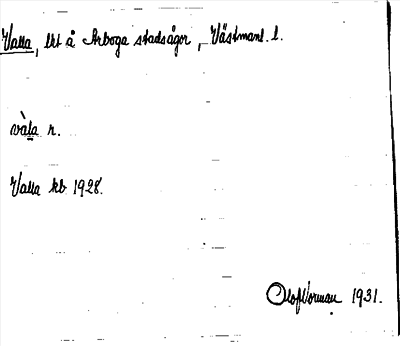 Valla, lht å Arboga stadsägor, Västmanl. l.
vàla r.
Valla kb 1928.
Olof Norman 1931.